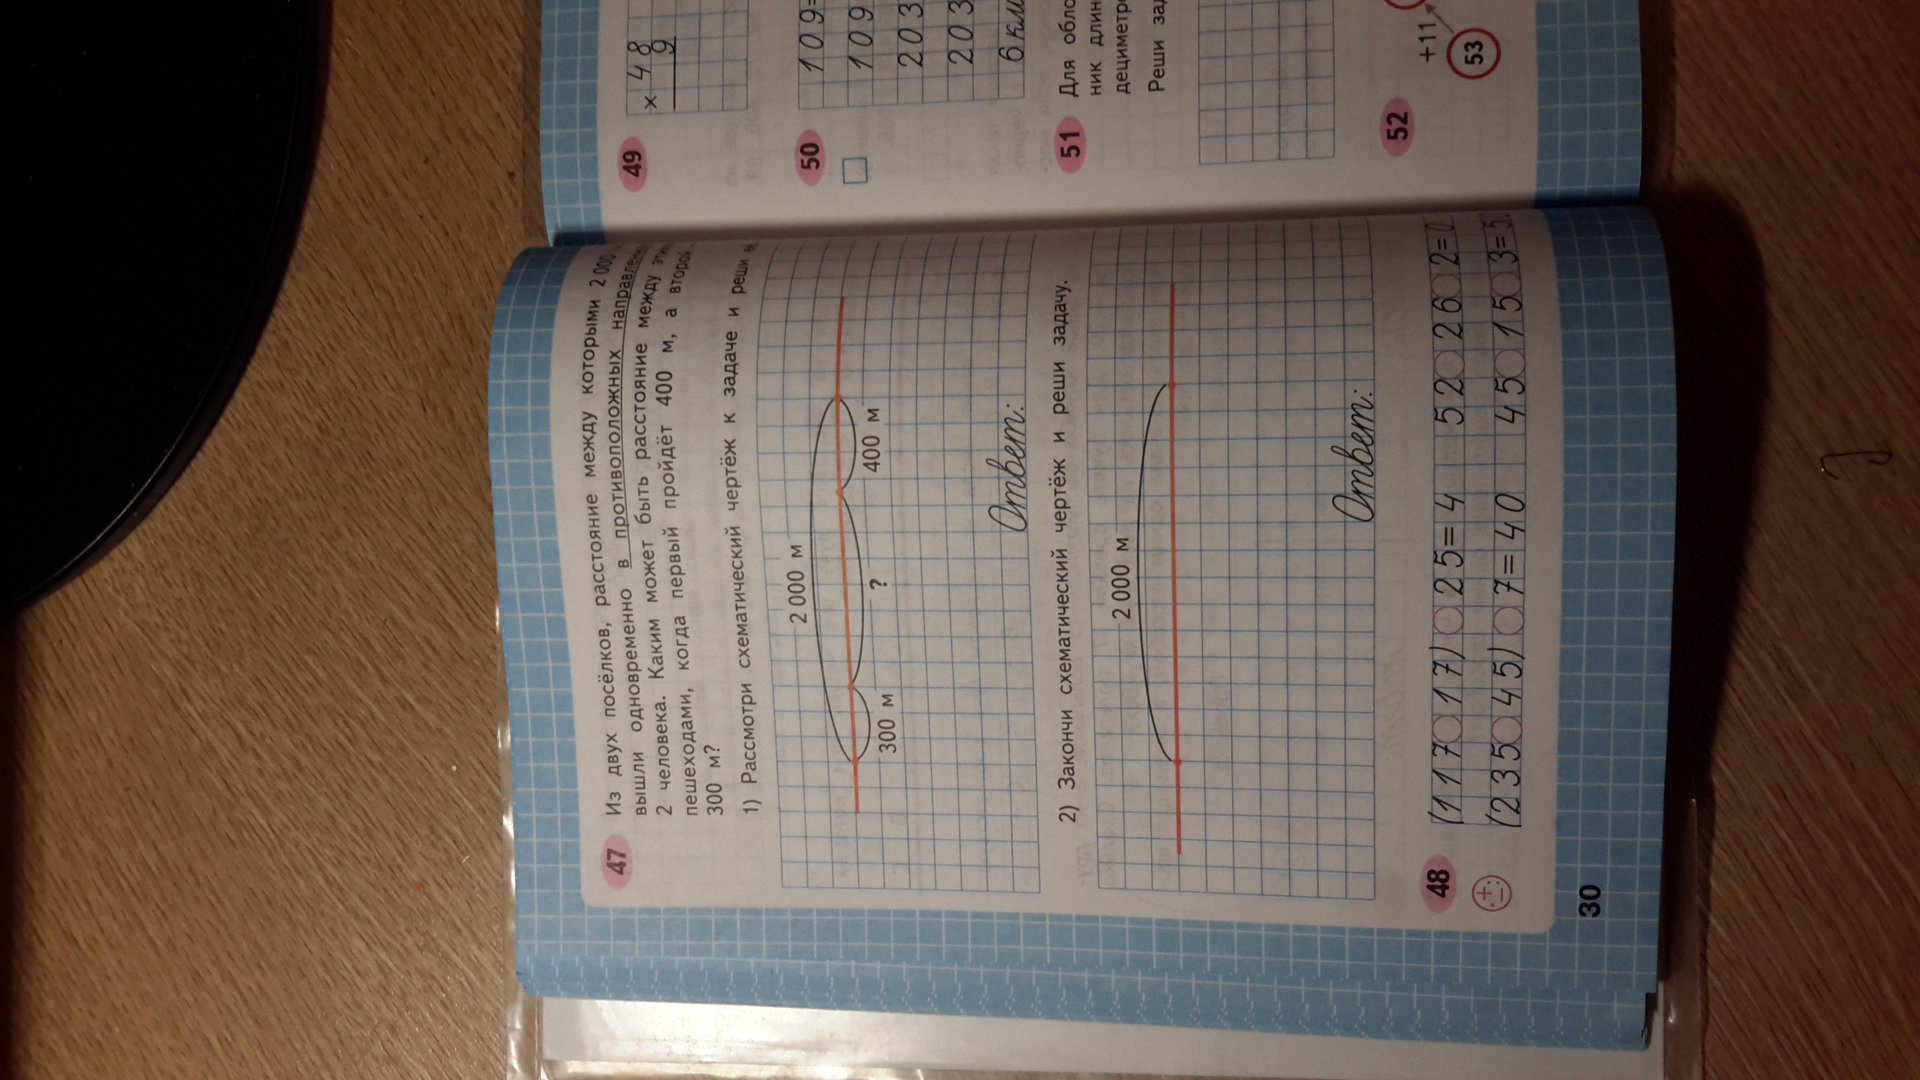 47 Из двух посёлков, расстояние между которыми 2 000
вышли одновременно в противоположных направлени
2 человека. Каким может быть расстояние между эти
пешеходами, когда первый пройдёт 400 м, а второй
300 м?
1) Рассмотри схематический чертёж к задаче и реши
2 000 м
300 м
?
400 м
Ответ:
2) Закончи схематический чертёж и реши задачу.
2 000 м
Ответ:
48 (117 17) 25=4 52 26 2=0
(235 45) 7=40 45 15 3=5
30
49
× 48
9
50
109=
109
203
203
6 км
51 Для обло
ник длин
дециметр
Реши за
52
+11
53